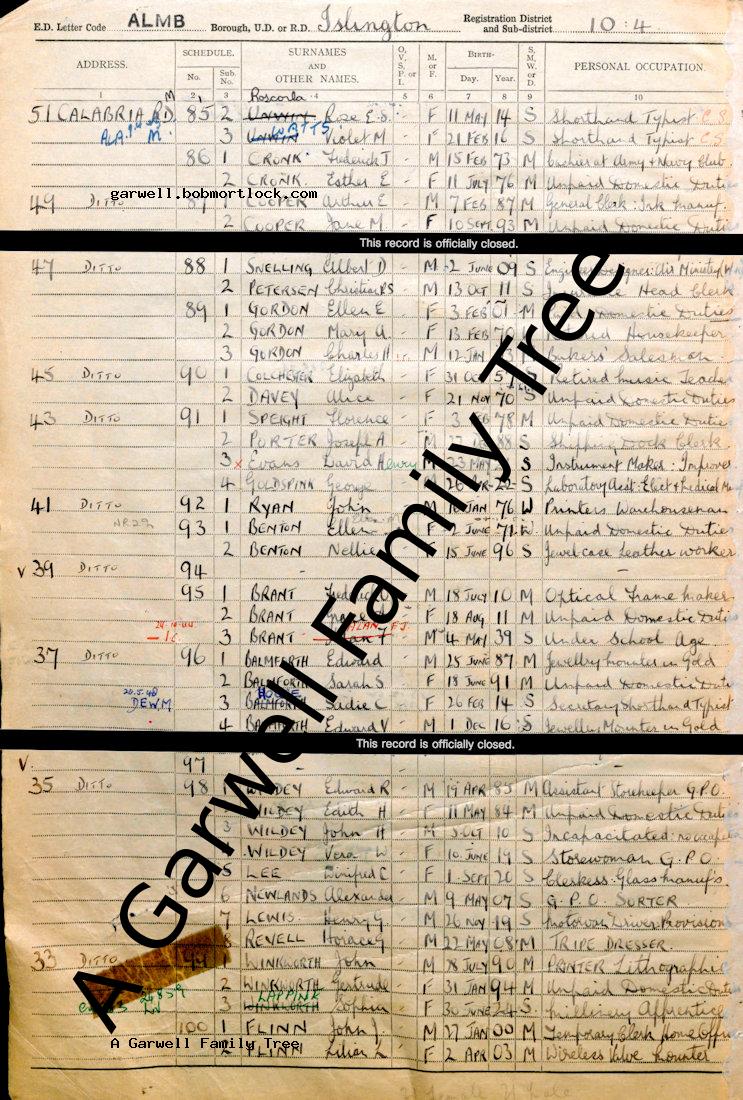 E.D. Letter Code ALMB Borough, U.D. or R.D. Islington Registration District and Sub-district 10:4
ADDRESS. SCHEDULE. No. Sub. No. SURNAMES AND OTHER NAMES. O, V, S, P, or I. M. or F. BIRTH- Day. Year. S. M. W. or D. PERSONAL OCCUPATION.
1 2 3 4 5 6 7 8 9 10
Roscorla
51 CALABRIA RD 85 2 UNWIN Rose E.S. - F 11 MAY 14 S Shorthand Typist C.S.
3 UNWIN WATTS Violet M - F 21 FEB 16 S Shorthand Typist C.S
86 1 CRONK Frederick J - M 15 FEB 73 M Cashier at Army & Navy Club
2 CRONK Esther E - F 11 JULY 76 M Unpaid Domestic Duties
garwell.bobmortlock.com
49 DITTO 87 1 COOPER Arthur E - M 7 FEB 87 M General Clerk: Ink Manuf.
2 COOPER Jane M - F 10 SEPT 93 M Unpaid Domestic Duties
This record is officially closed.
47 DITTO 88 1 SNELLING Gilbert D - M 2 JUNE 09 S Engineer Designer: Air Ministry
2 PETERSEN Christian P S - M 13 OCT 11 S Head Clerk
89 1 GORDON Ellen E - F 3 FEB 01 M Domestic Duties
2 GORDON Mary A. - F 13 FEB 70 Housekeeper
3 GORDON Charles H M 12 JAN Bakers' Salesman
45 DITTO 90 1 COLCHESTER Elizabeth - F 31 OCT Retired Music Teacher
2 DAVEY Alice - F 21 NOV 70 S Unpaid Domestic Duties
43 DITTO 91 1 SPEIGHT Florence - F 3 FEB 78 M Unpaid Domestic Duties
2 PORTER Joseph A - M 88 S Shipping Dock Clerk
3 x Evans David Henry M 23 MAY S Instrument Maker: Improver
4 GOLDSPINK George M 26 22 S Laboratory Asst: Elect & Medical
41 DITTO 92 1 RYAN John M JAN 76 W Printers Warehouseman
93 1 BENTON Ellen F 2 JUNE 71 W Unpaid Domestic Duties
2 BENTON Nellie F 15 JUNE 96 S Jewel case Leather worker
v 39 DITTO 94 - -
95 1 BRANT M 18 JULY 10 M Optical Frame maker
2 BRANT F 18 AUG 11 M Unpaid Domestic Duties
ALAN F.J.
3 BRANT M 4 MAY 39 S Under School Age
37 DITTO 96 1 BALMFORTH Edward M 25 JUNE 87 M Jewellery Mounter in Gold
2 BALMFORTH Sarah S F 18 JUNE 91 M Unpaid Domestic Duties
20.5.40 DEWM 3 BALMFORTH Sadie C - F 26 FEB 14 S Secretary Shorthand Typist
4 BALMFORTH Edward V - M 1 DEC 16 S Jewellery Mounter in Gold
This record is officially closed.
v. 97 - -
35 DITTO 98 1 WILDEY Edward R - M 19 APR 85 M Assistant Storekeeper G.P.O.
WILDEY Edith H - F 11 MAY 84 M Unpaid Domestic Duties
3 WILDEY John H - M 5 OCT 10 S Incapacitated:
WILDEY Vera W - F 10 JUNE 19 S Storewoman G.P.O.
5 LEE Winifred C - F 1 SEPT 20 S Clerkess: Glass manufs.
6 NEWLANDS Alexander - M 9 MAY 07 S G.P.O SORTER
7 LEWIS Henry G - M 26 NOV 19 S Motorvan Driver Provisions
8 REVELL Horace G - M 22 MAY 08 M TRIPE DRESSER.
33 DITTO 99 1 WINKWORTH John - M 18 JULY 90 M PRINTER Lithographic
2 WINKWORTH Gertrude F 31 JAN 94 M Unpaid Domestic Duties
LAPPINE
3 WINKWORTH Sophia - F 30 JUNE 24 S. Millinery Apprentice
100 1 FLINN John J. - M 27 JAN 00 M Temporary Clerk Home Office
2 FLINN Lilian L - F 2 APR 03 M Wireless Valve Mounter
A Garwell Family Tree
A Garwell Family Tree